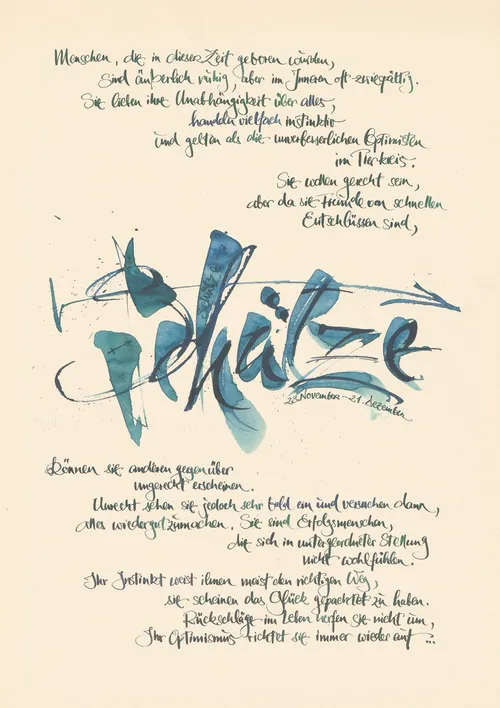 Menschen, die in dieser Zeit geboren wurden,
sind äußerlich ruhig, aber im Inneren oft zwiespältig.
Sie lieben ihre Unabhängigkeit über alles,
handeln vielfach instinktiv
und gelten als die unverbesserlichen Optimisten
im Tierkreis.
Sie wollen gerecht sein,
aber da sie Freunde von schnellen
Entschlüssen sind,
Schütze
23. November - 21. Dezember
können sie anderen gegenüber
ungerecht erscheinen.
Unrecht sehen sie jedoch sehr bald ein und versuchen dann,
alles wiedergutzumachen. Sie sind Erfolgsmenschen,
die sich in untergeordneter Stellung
nicht wohlfühlen.
Ihr Instinkt weist ihnen meist den richtigen Weg,
sie scheinen das Glück gepachtet zu haben.
Rückschläge im Leben werfen sie nicht um,
Ihr Optimismus richtet sie immer wieder auf ...